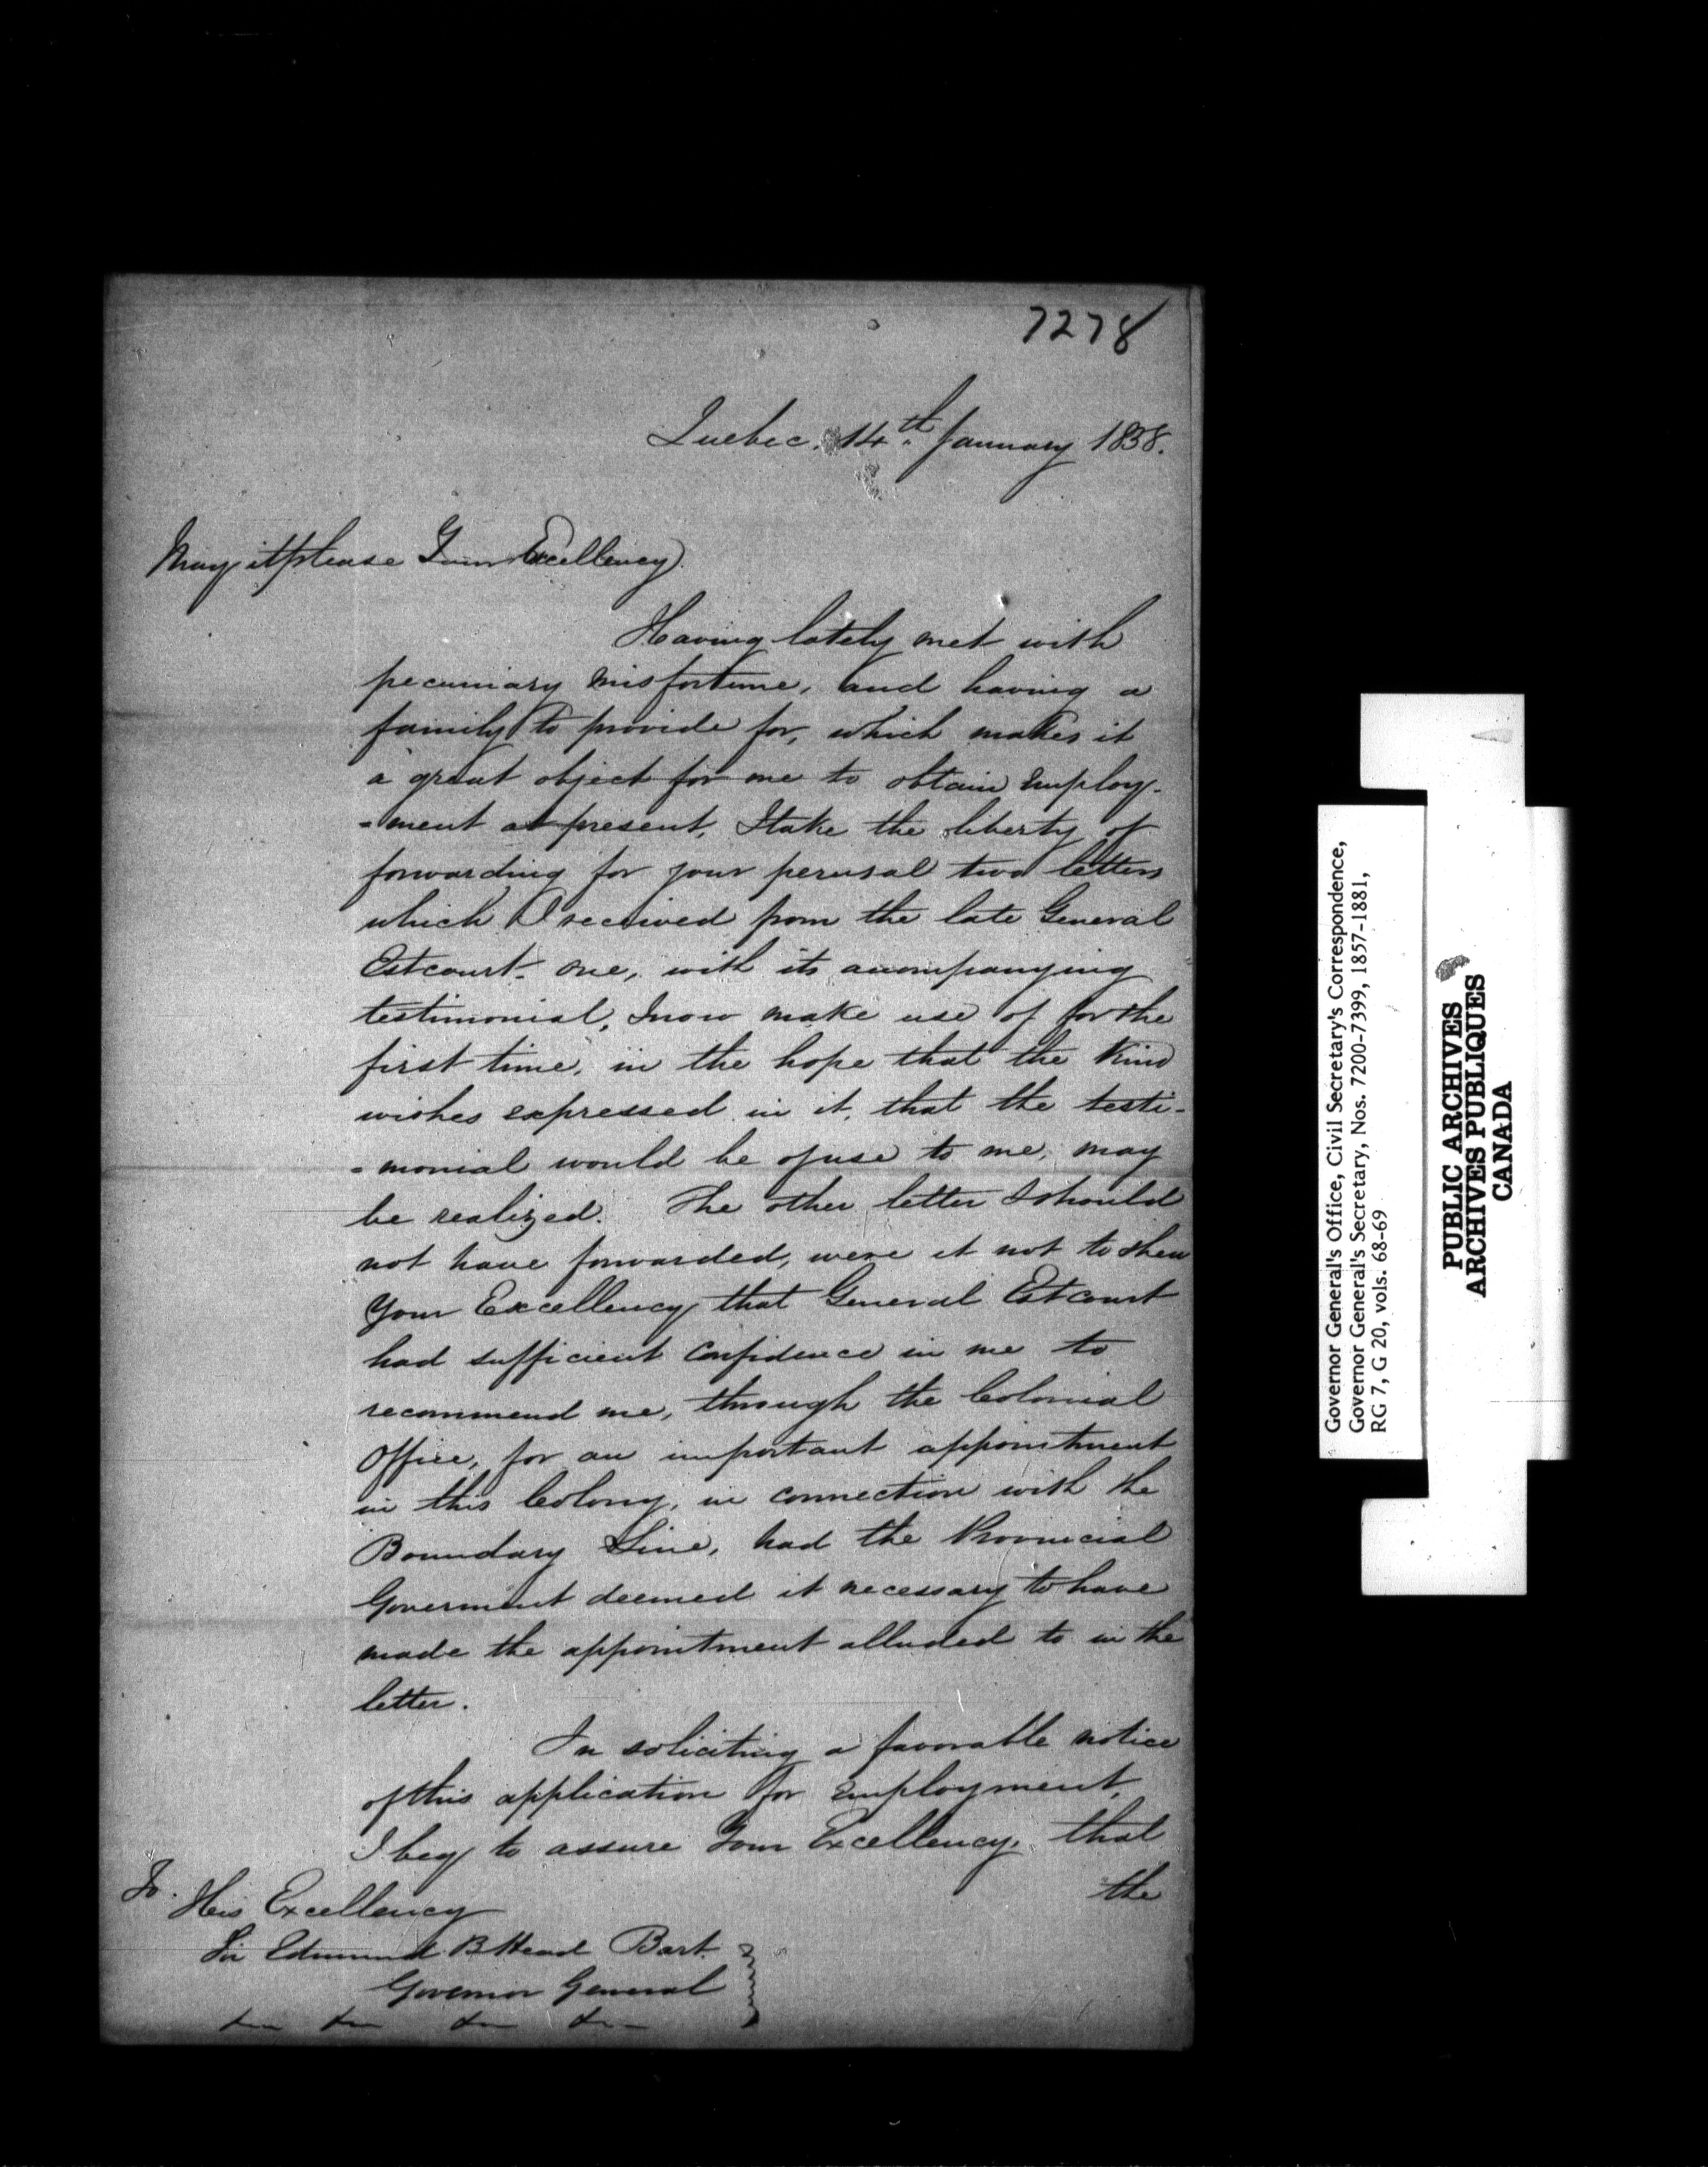 7278
Quebec, 14th January 1838.
May it please Your Excellency
Having lately met with
pecuniary misfortune, and having a
family to provide for, which makes it
a great object for me to obtain employ-
-ment at present, I take the liberty of
forwarding for your perusal two letters
which I received from the late General
Estcourt - one, with its accompanying
testimonial, I now make use of for the
first time, in the hope that the kind
wishes expressed in it, that the testi-
-monial would be of use to me, may
be realized. The other letter I should
not have forwarded, were it not to shew
Your Excellency that General Estcourt
had sufficient confidence in me to
recommend me, through the Colonial
Office, for an important appointment
in this Colony, in connection with the
Boundary Line, had the Provincial
Goverment deemed it necessary to have
made the appointment alluded to in the
letter.
In soliciting a favorable notice
of this application for employment,
I beg to assure Your Excellency, that
the
To.
His Excellency
Sir Edmund B Head Bart.
Governor General
Governor General's Office, Civil Secretary's Correspondence,
Governor General's Secretary, Nos. 7200-7399, 1857-1881,
RG 7, G 20, vols. 68-69
PUBLIC ARCHIVES
ARCHIVES PUBLIQUES
CANADA